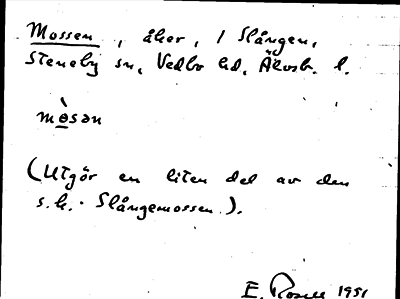 Mossen, åker, 1 Slången,
Steneby sn, Vedbo hd, Älvsb. l.
mò̱sən
(Utgör en liten del av den
s.k. Slångemossen).
E. Rosell 1951